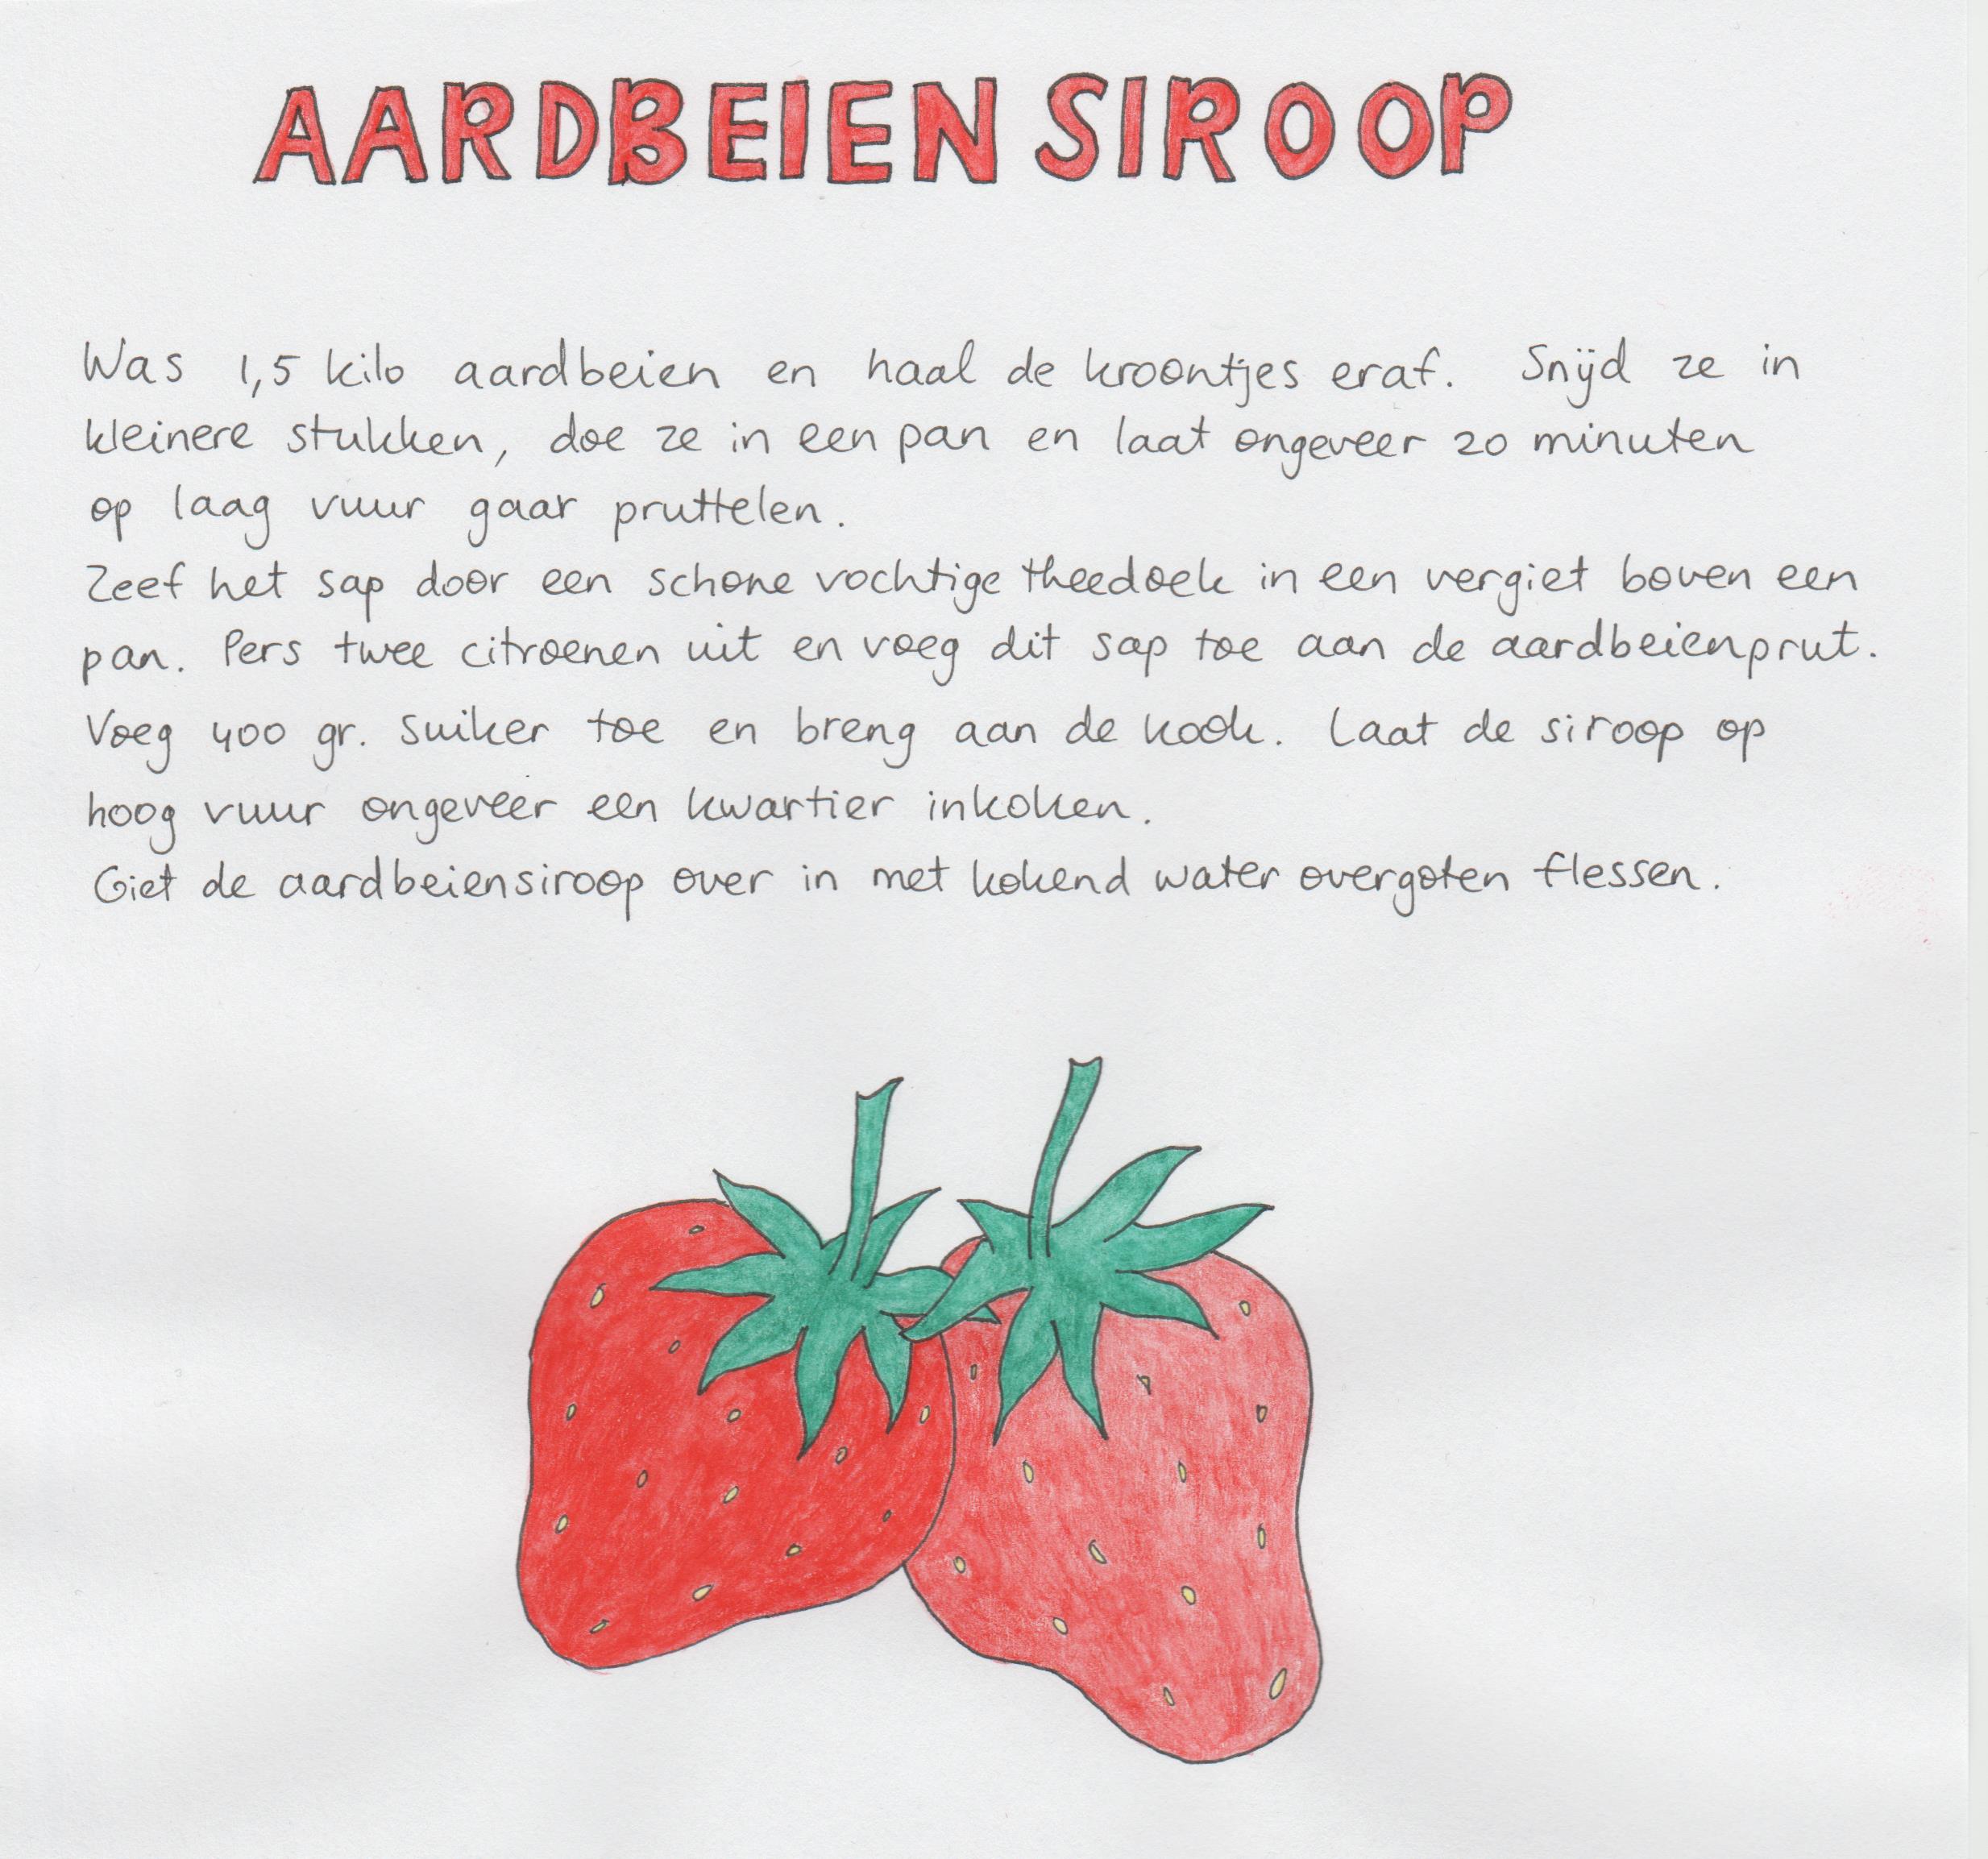 AARDBEIEN SIROOP
Was 1,5 kilo aardbeien en haal de kroontjes eraf. Snijd ze in
kleinere stukken, doe ze in een pan en laat ongeveer 20 minuten
op laag vuur gaar pruttelen.
Zeef het sap door een schone vochtige theedoek in een vergiet boven een
pan. Pers twee citroenen uit en voeg dit sap toe aan de aardbeienprut.
Voeg 400 gr. suiker toe en breng aan de kook. Laat de siroop op
hoog vuur ongeveer een kwartier inkoken.
Giet de aardbeiensiroop over in met kokend water overgoten flessen.